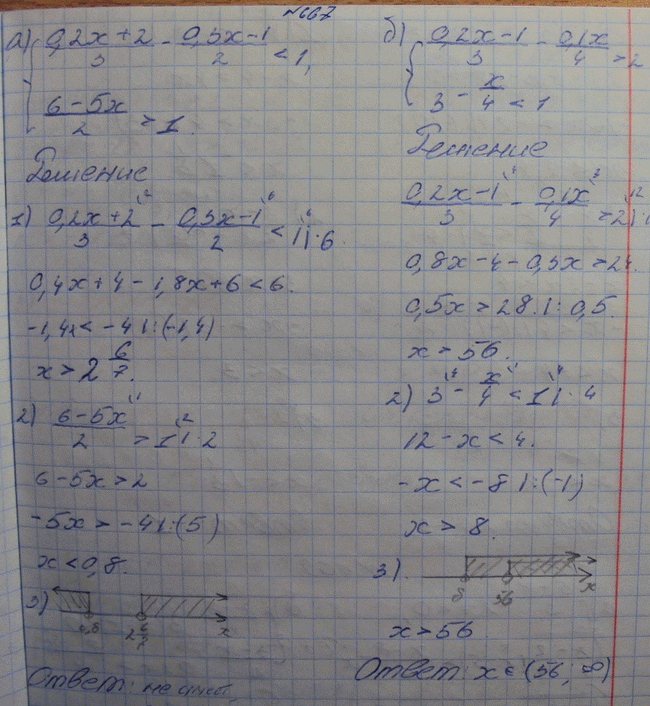 №667
а) { (0,2x+2)/3 - (0,3x-1)/2 < 1,
(6-5x)/2 > 1.
Решение
1) (0,2x+2)/3 - (0,3x-1)/2 < 1 |·6
0,4x+4-1,8x+6<6.
-1,4x<-4 |:(-1,4)
x > 2 6/7.
2) (6-5x)/2 > 1 |·2
6-5x>2
-5x>-4 |:(5)
x<0,8.
3) 0,8 2 6/7 x
Ответ: не имеет,
б) { (0,2x-1)/3 - 0,1x/4 > 2
3 - x/4 < 1
Решение
(0,2x-1)/3 - 0,1x/4 > 2 |
0,8x-4-0,3x>24.
0,5x>28. |:0,5.
x>56.
2) 3 - x/4 < 1 |·4
12-x<4.
-x<-8 |:(-1)
x>8.
3). 8 56 x
x>56
Ответ: x∈(56; ∞)